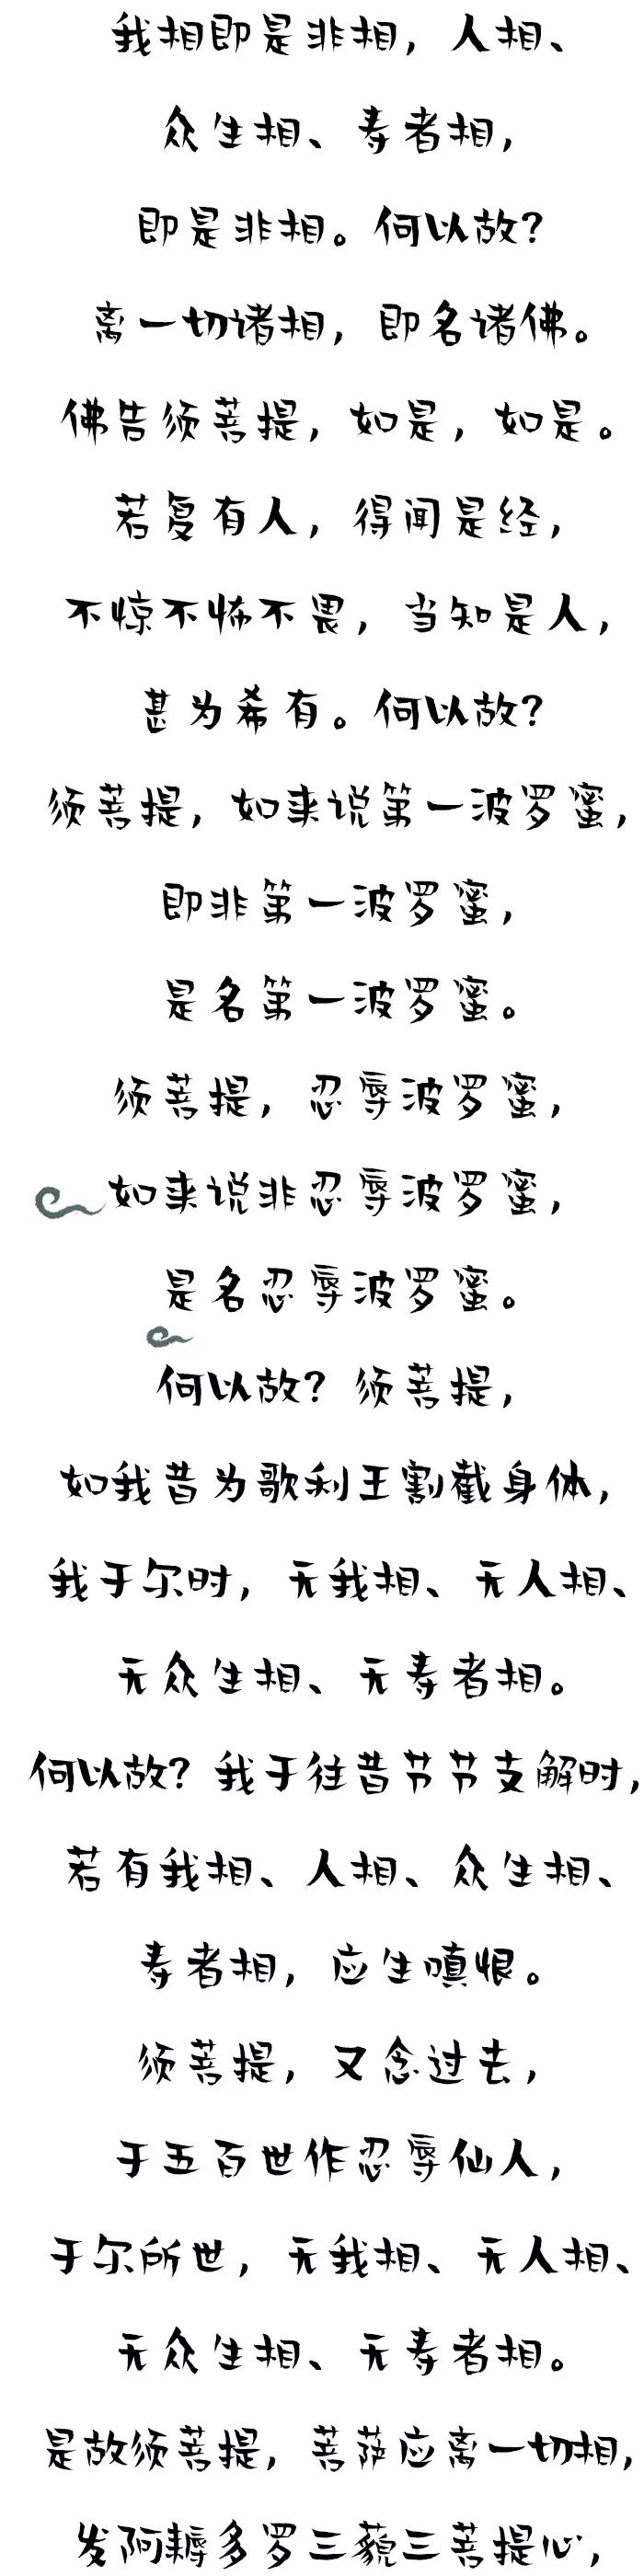 我相即是非相，人相、
众生相、寿者相，
即是非相。何以故？
离一切诸相，即名诸佛。
佛告须菩提，如是，如是。
若复有人，得闻是经，
不惊不怖不畏，当知是人，
甚为希有。何以故？
须菩提，如来说第一波罗蜜，
即非第一波罗蜜，
是名第一波罗蜜。
须菩提，忍辱波罗蜜，
如来说非忍辱波罗蜜，
是名忍辱波罗蜜。
何以故？须菩提，
如我昔为歌利王割截身体，
我于尔时，无我相、无人相、
无众生相、无寿者相。
何以故？我于往昔节节支解时，
若有我相、人相、众生相、
寿者相，应生嗔恨。
须菩提，又念过去，
于五百世作忍辱仙人，
于尔所世，无我相、无人相、
无众生相、无寿者相。
是故须菩提，菩萨应离一切相，
发阿耨多罗三藐三菩提心，